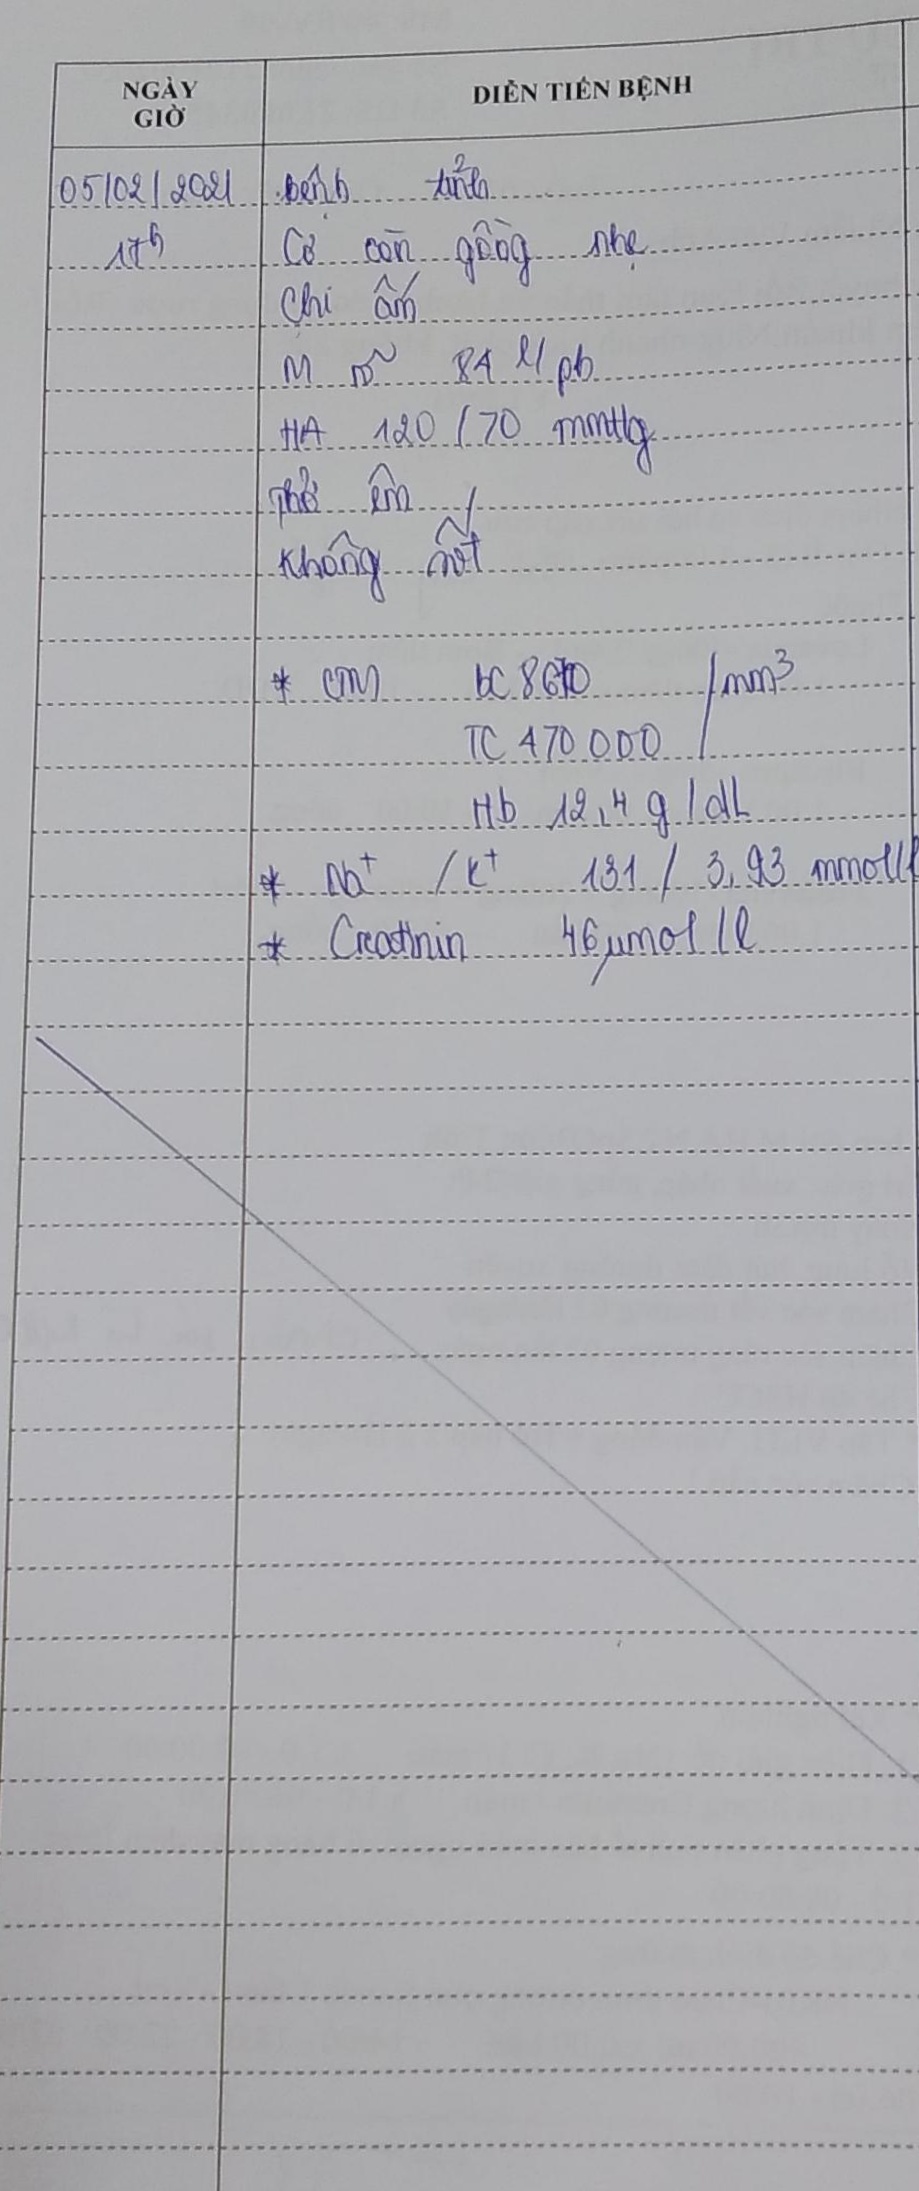 NGÀY
GIỜ
DIỄN TIẾN BỆNH
05/02/2021
17h
bệnh tỉnh
Cơ còn gồng nhẹ
Chi ấm
M rõ 84 l/ph
HA 120/70 mmHg
Thở êm
Không sốt
* CTM BC 8670 /mm³
TC 470 000
Hb 12,4 g/dL
* Na⁺ / K⁺ 131 / 3,93 mmol/l
* Creatinin 46 µmol/l